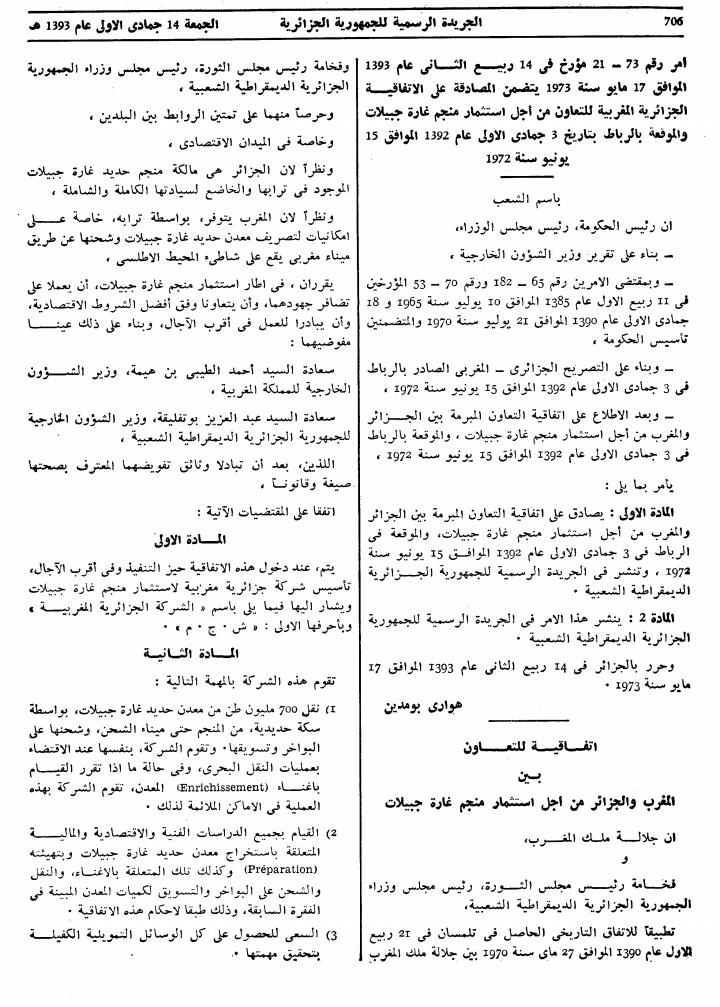 الجمعة 14 جمادى الاولى عام 1393 هـ
الجريدة الرسمية للجمهورية الجزائرية
706
امر رقم 73 – 21 مؤرخ فى 14 ربيع الثانى عام 1393
الموافق 17 مايو سنة 1973 يتضمن المصادقة على الاتفاقية
الجزائرية المغربية للتعاون من أجل استثمار منجم غارة جبيلات
والموقعة بالرباط بتاريخ 3 جمادى الاولى عام 1392 الموافق 15
يونيو سنة 1972
باسم الشعب
ان رئيس الحكومة، رئيس مجلس الوزراء،
– بناء على تقرير وزير الشؤون الخارجية ،
– وبمقتضى الامرين رقم 65 – 182 ورقم 70 – 53 المؤرخين
فى 11 ربيع الاول عام 1385 الموافق 10 يوليو سنة 1965 و 18
جمادى الاولى عام 1390 الموافق 21 يوليو سنة 1970 والمتضمنين
تأسيس الحكومة ،
– وبناء على التصريح الجزائرى – المغربى الصادر بالرباط
فى 3 جمادى الاولى عام 1392 الموافق 15 يونيو سنة 1972 ،
– وبعد الاطلاع على اتفاقية التعاون المبرمة بين الجزائر
والمغرب من أجل استثمار منجم غارة جبيلات ، والموقعة بالرباط
فى 3 جمادى الاولى عام 1392 الموافق 15 يونيو سنة 1972 ،
يأمر بما يلى :
المادة الاولى : يصادق على اتفاقية التعاون المبرمة بين الجزائر
والمغرب من أجل استثمار منجم غارة جبيلات، والموقعة فى
الرباط فى 3 جمادى الاولى عام 1392 الموافق 15 يونيو سنة
1972 ، وتنشر فى الجريدة الرسمية للجمهورية الجزائرية
الديمقراطية الشعبية •
المادة 2 : ينشر هذا الامر فى الجريدة الرسمية للجمهورية
الجزائرية الديمقراطية الشعبية •
وحرر بالجزائر فى 14 ربيع الثانى عام 1393 الموافق 17
مايو سنة 1973 •
هوارى بومدين
اتفاقية للتعاون
بين
المغرب والجزائر من أجل استثمار منجم غارة جبيلات
ان جلالة ملك المغرب،
و
فخامة رئيس مجلس الثورة، رئيس مجلس وزراء
الجمهورية الجزائرية الديمقراطية الشعبية،
تطبيقاً للاتفاق التاريخى الحاصل فى تلمسان فى 21 ربيع
الاول عام 1390 الموافق 27 ماى سنة 1970 بين جلالة ملك المغرب
وفخامة رئيس مجلس الثورة، رئيس مجلس وزراء الجمهورية
الجزائرية الديمقراطية الشعبية ،
وحرصاً منهما على تمتين الروابط بين البلدين ،
وخاصة فى الميدان الاقتصادى ،
ونظراً لان الجزائر هى مالكة منجم حديد غارة جبيلات
الموجود فى ترابها والخاضع لسيادتها الكاملة والشاملة ،
ونظراً لان المغرب يتوفر، بواسطة ترابه، خاصة على
امكانيات لتصريف معدن حديد غارة جبيلات وشحنها عن طريق
ميناء مغربى يقع على شاطىء المحيط الاطلسى ،
يقرران ، فى اطار استثمار منجم غارة جبيلات، أن يعملا على
تضافر جهودهما، وأن يتعاونا وفق أفضل الشروط الاقتصادية،
وأن يبادرا للعمل فى أقرب الآجال، وبناء على ذلك عينا
مفوضيهما :
سعادة السيد أحمد الطيبى بن هيمة، وزير الشؤون
الخارجية للمملكة المغربية ،
سعادة السيد عبد العزيز بوتفليقة، وزير الشؤون الخارجية
للجمهورية الجزائرية الديمقراطية الشعبية ،
اللذين، بعد أن تبادلا وثائق تفويضهما المعترف بصحتها
صيغة وقانوناً ،
اتفقا على المقتضيات الآتية :
المادة الاولى
يتم، عند دخول هذه الاتفاقية حيز التنفيذ وفى أقرب الآجال،
تأسيس شركة جزائرية مغربية لاستثمار منجم غارة جبيلات
ويشار اليها فيما يلى باسم « الشركة الجزائرية المغربية »
وبأحرفها الاولى : « ش • ج • م » •
المادة الثانية
تقوم هذه الشركة بالمهمة التالية :
1) نقل 700 مليون طن من معدن حديد غارة جبيلات، بواسطة
سكة حديدية، من المنجم حتى ميناء الشحن، وشحنها على
البواخر وتسويقها• وتقوم الشركة، بنفسها عند الاقتضاء
بعمليات النقل البحرى، وفى حالة ما اذا تقرر القيام
باغناء (Enrichissement) المعدن، تقوم الشركة بهذه
العملية فى الاماكن الملائمة لذلك •
2) القيام بجميع الدراسات الفنية والاقتصادية والمالية
المتعلقة باستخراج معدن حديد غارة جبيلات وبتهيئته
(Préparation) وكذلك تلك المتعلقة بالاغناء، والنقل
والشحن على البواخر والتسويق لكميات المعدن المبينة فى
الفقرة السابقة، وذلك طبقا لاحكام هذه الاتفاقية •
3) السعى للحصول على كل الوسائل التمويلية الكفيلة
بتحقيق مهمتها •